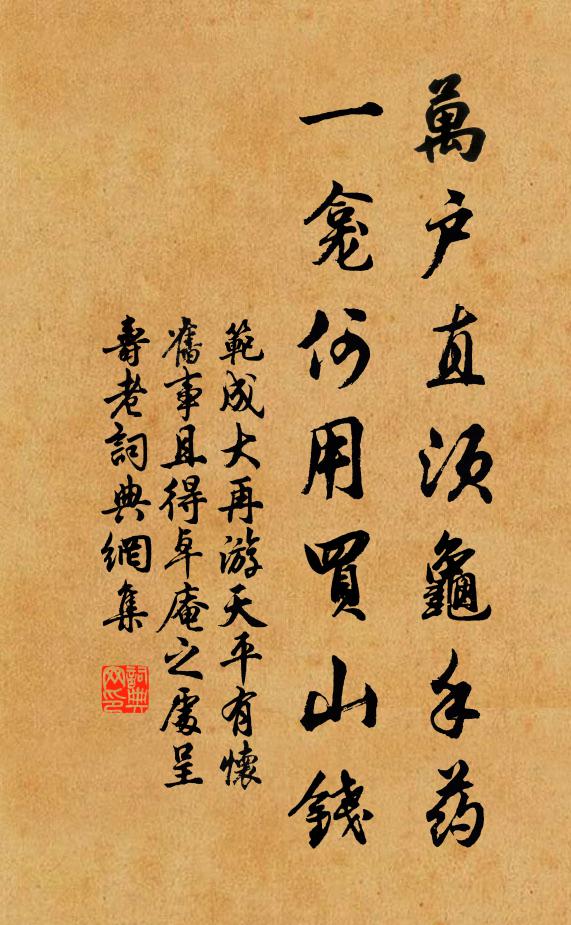 萬户直須龜手药
一龛何用買山錢
範成大再游天平有懷
舊事且得卓庵之處呈
壽老詞典網集
詞典
网印